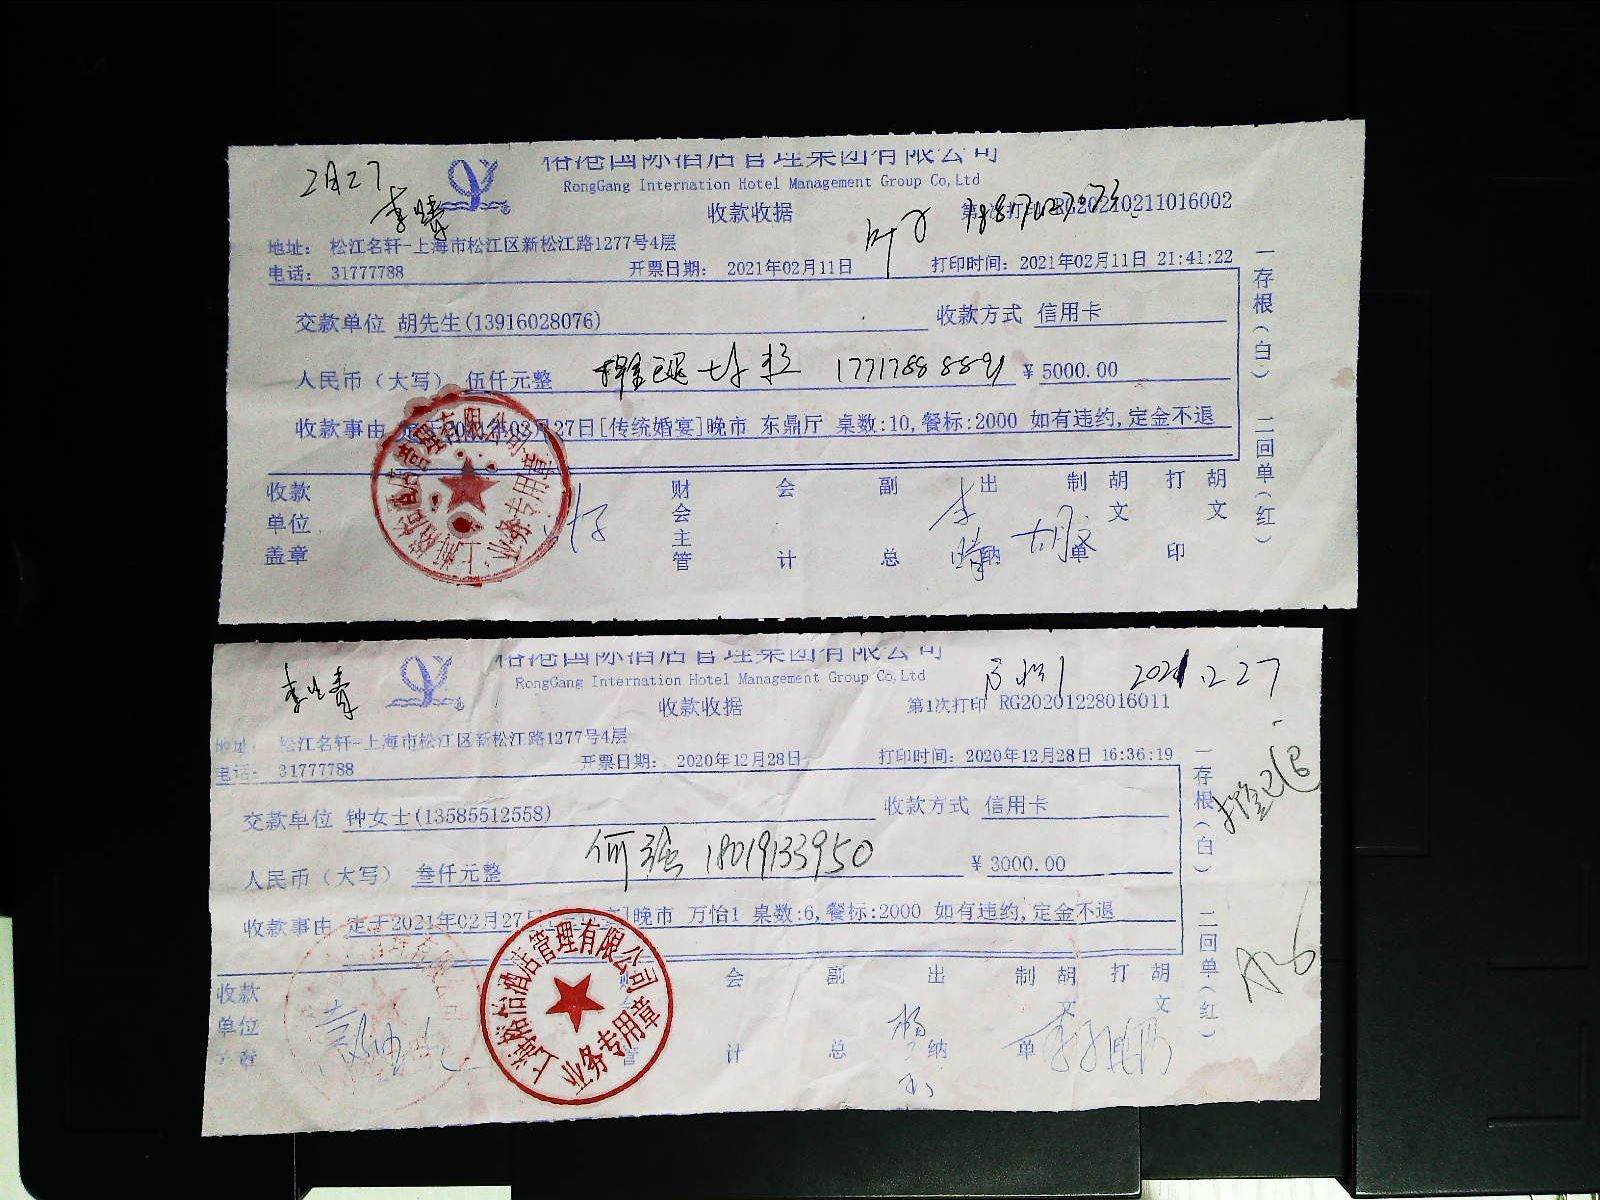 2月27
裕港国际酒店管理集团有限公司
RongGang Internation Hotel Management Group Co,Ltd
李婧
收款收据
第1次打印 RG20210211016002
地址: 松江名轩-上海市松江区新松江路1277号4层
电话: 31777788 开票日期: 2021年02月11日 打印时间: 2021年02月11日 21:41:22
交款单位 胡先生(13916028076) 收款方式 信用卡
人民币（大写） 伍仟元整 1771788 8891 ¥ 5000.00
收款事由 定于2021年02月27日[传统婚宴]晚市 东鼎厅 桌数:10,餐标:2000 如有违约,定金不退
收款单位盖章 财会主管 会计 副总 出纳 制单 胡文 打印 胡文
李婧 胡文
上海裕怡酒店管理有限公司
业务专用章
一存根(白) 二回单(红)
裕港国际酒店管理集团有限公司
RongGang Internation Hotel Management Group Co,Ltd
2021.2.27
收款收据
第1次打印 RG20201228016011
地址: 松江名轩-上海市松江区新松江路1277号4层
电话: 31777788 开票日期: 2020年12月28日 打印时间: 2020年12月28日 16:36:19
交款单位 钟女士(13585512558) 收款方式 信用卡
何强 18019133950
人民币（大写） 叁仟元整 ¥ 3000.00
收款事由 定于2021年02月27日 晚市 万怡1 桌数:6,餐标:2000 如有违约,定金不退
收款单位 会计 副总 出纳 制单 胡文 打 胡文
上海裕怡酒店管理有限公司
业务专用章
一存根(白) 二回单(红)